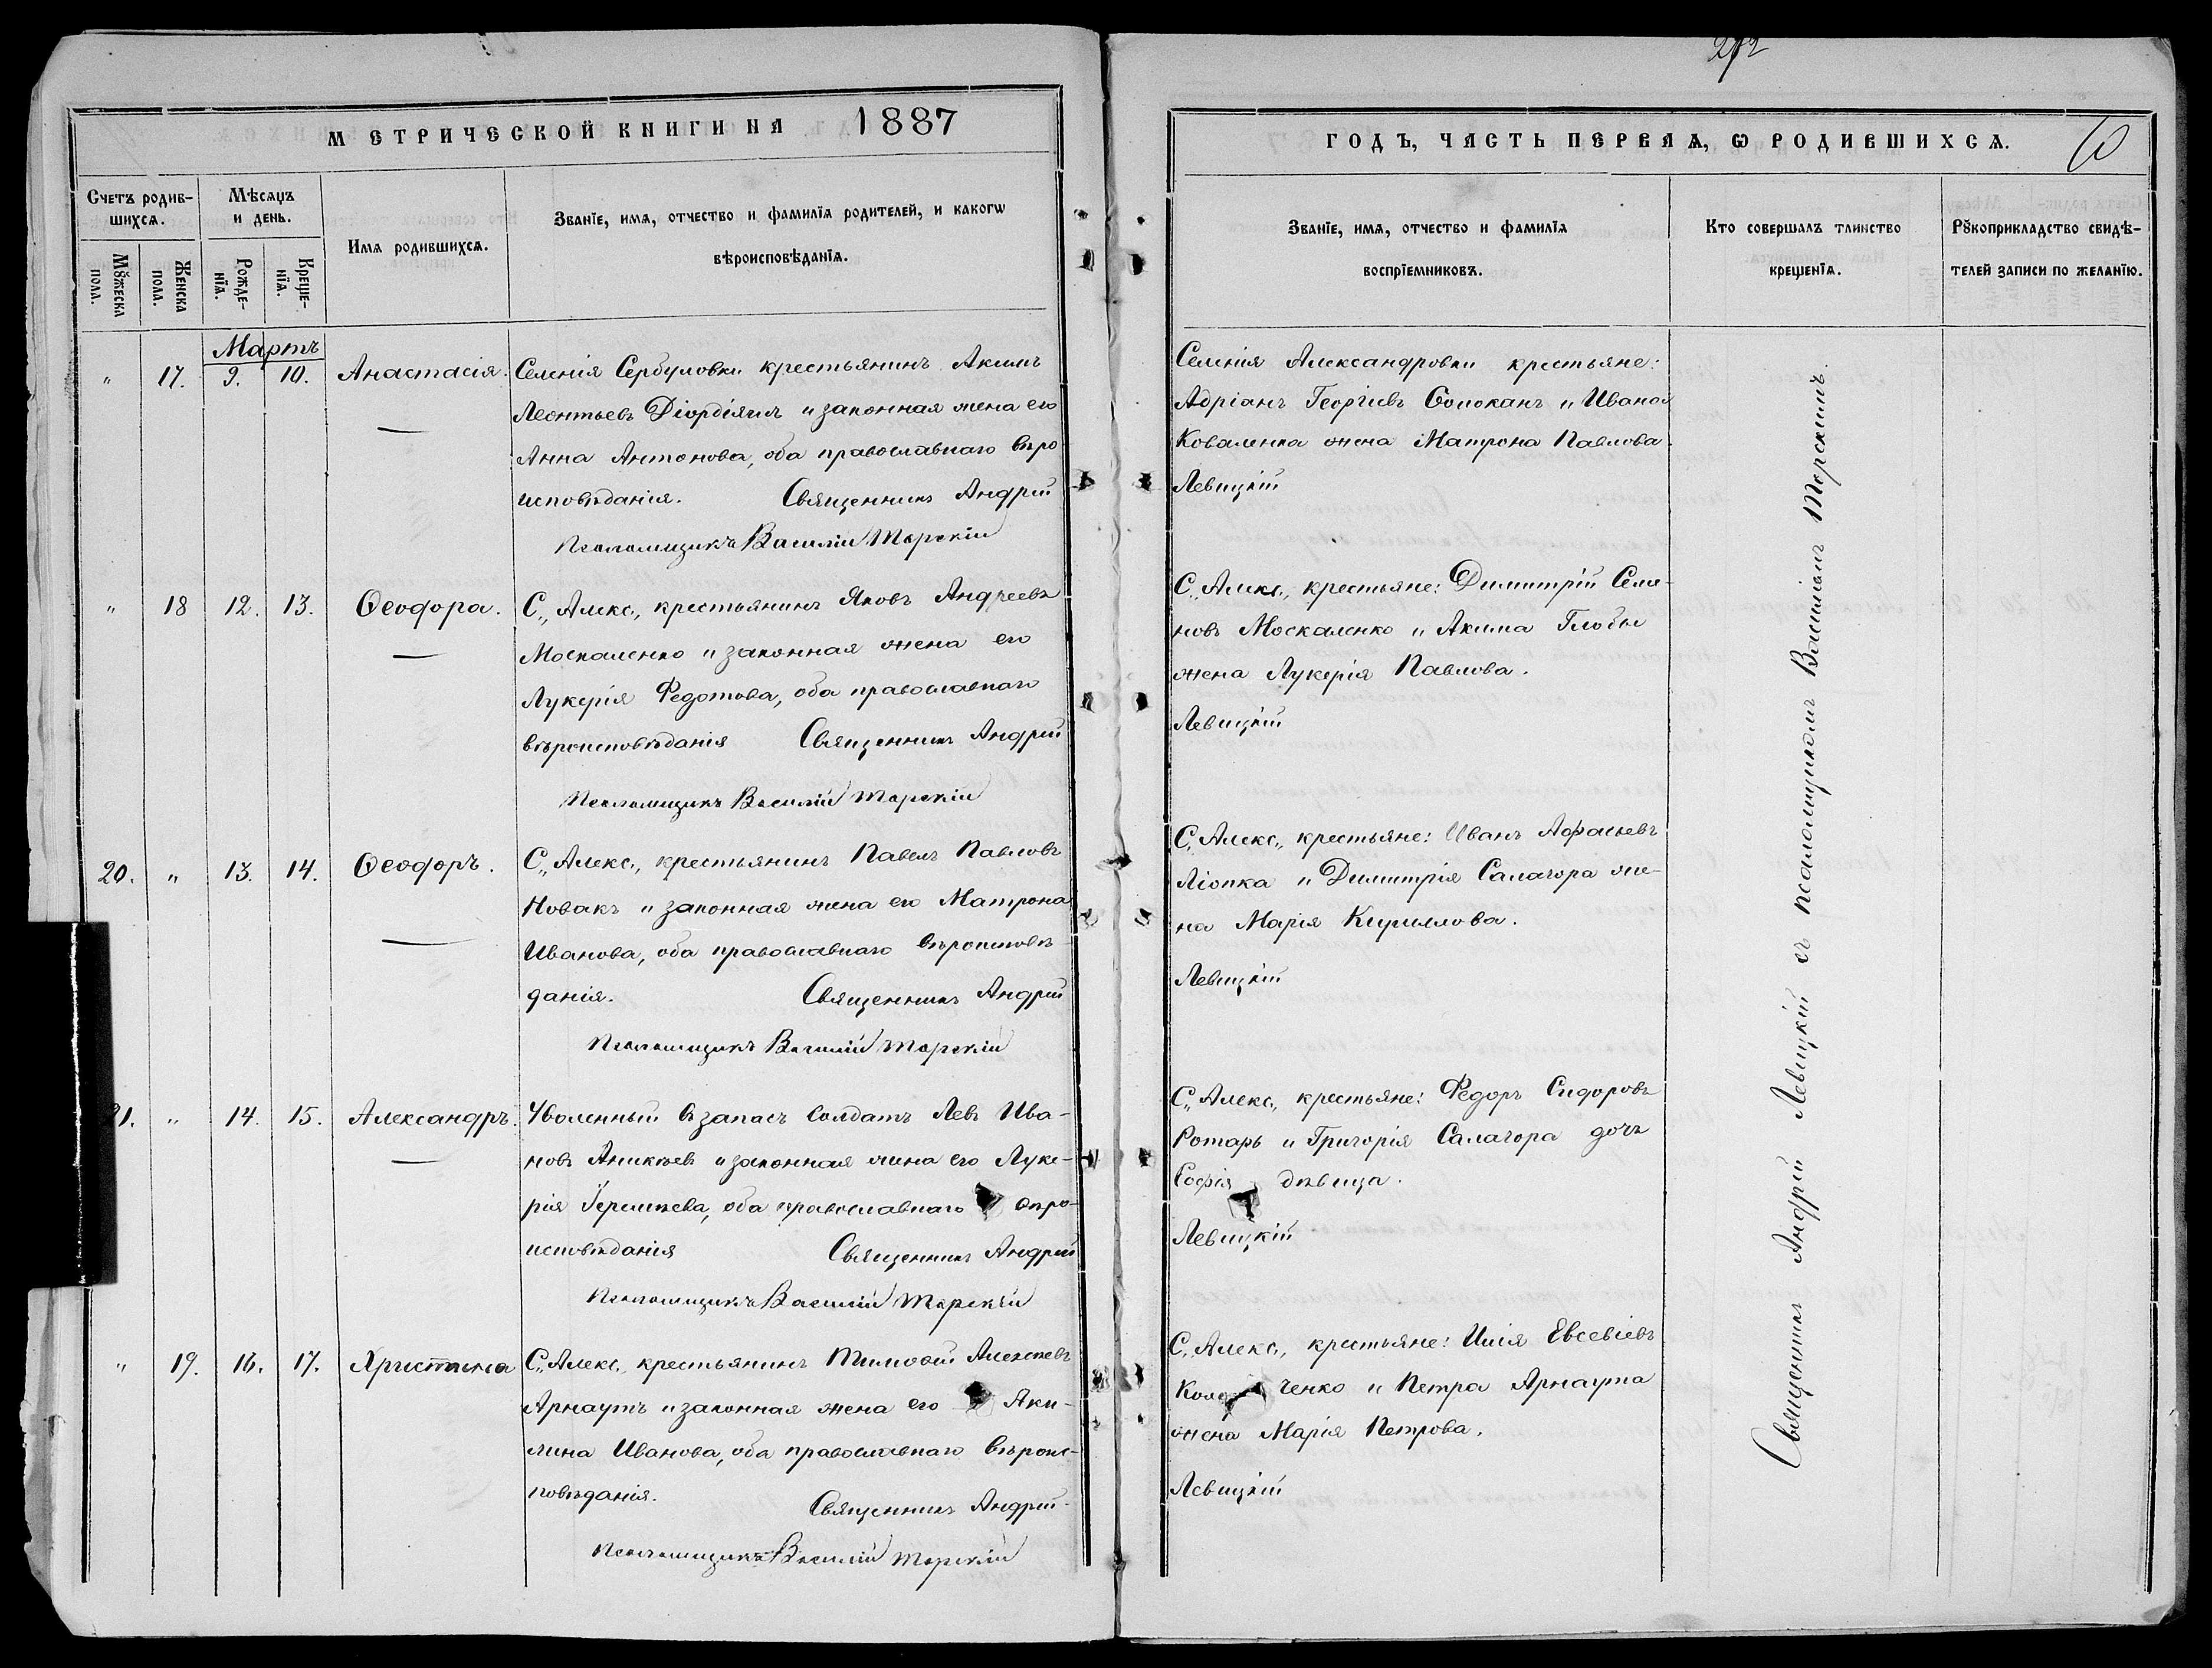 272
МЕТРИЧЕСКОЙ КНИГИ НА 1887
ГОДЪ, ЧАСТЬ ПЕРВАЯ, Ѡ РОДИВШИХСЯ.
Счетъ родив-
шихся.
Мѣсяцъ
и день.
Имя родившихся.
Званїе, имя, отчество и фамилїя родителей, и какогѡ
вѣроисповѣданїя.
Мꙋжеска
пола.
Женска
пола.
Рожде-
нїя.
Креще-
нїя.
Званїе, имя, отчество и фамилїя
воспрїемниковъ.
Кто совершалъ таинство
крещенїя.
Рꙋкоприкладство свидѣ-
телей записи по желанїю.
Мартъ
" 17. 9. 10. Анастасія. Селенія Сербуловки крестьянинъ Акимъ
Леонтьевъ и законная жена его
Анна Антонова, оба православнаго вѣро
исповѣданія. Священникъ Андрей
Псаломщикъ Василій Торскій
Селенія Александровки крестьяне:
Адріанъ Георгіевъ и Ивана
Коваленка жена Матрона Павлова.
Левицкій
" 18 12. 13. Ѳеодора. С., Алекс., крестьянинъ Яковъ Андреевъ
Москаленко и законная жена его
Лукерія Федотова, оба православнаго
вѣроисповѣданія Священникъ Андрей
Псаломщикъ Василій Торскій
С., Алекс., крестьяне: Димитрій Семе-
новъ Москаленко и Акима Глобы
жена Лукерія Павлова.
Левицкій
20. " 13. 14. Ѳеодоръ. С., Алекс., крестьянинъ Павелъ Павловъ
Новакъ и законная жена его Матрона
Иванова, оба православнаго вѣроисповѣ
данія. Священникъ Андрей
Псаломщикъ Василій Торскій
С., Алекс., крестьяне: Иванъ
и Димитрія Салагора же-
на Марія Кириллова.
Левицкій
21. " 14. 15. Александръ. Уволенный въ запасъ солдатъ Левъ Ива-
новъ Аникѣевъ и законная жена его Луке-
рія, оба православнаго вѣро-
исповѣданія Священникъ Андрей
Псаломщикъ Василій Торскій
С., Алекс., крестьяне: Федоръ Сидоровъ
Ротарь и Григорія Салагора дочь
Софія дѣвица.
Левицкій
" 19. 16. 17. Христина С., Алекс., крестьянинъ Тимофей Алексѣевъ
Арнаутъ и законная жена его Аки-
лина Иванова, оба православнаго вѣроис-
повѣданія. Священникъ Андрей
Псаломщикъ Василій Торскій
С., Алекс., крестьяне: Илія Евсевіевъ
и Петра Арнаута
жена Марія Петрова.
Левицкій
Священникъ Андрей Левицкій съ псаломщикомъ Василіемъ Торскимъ.